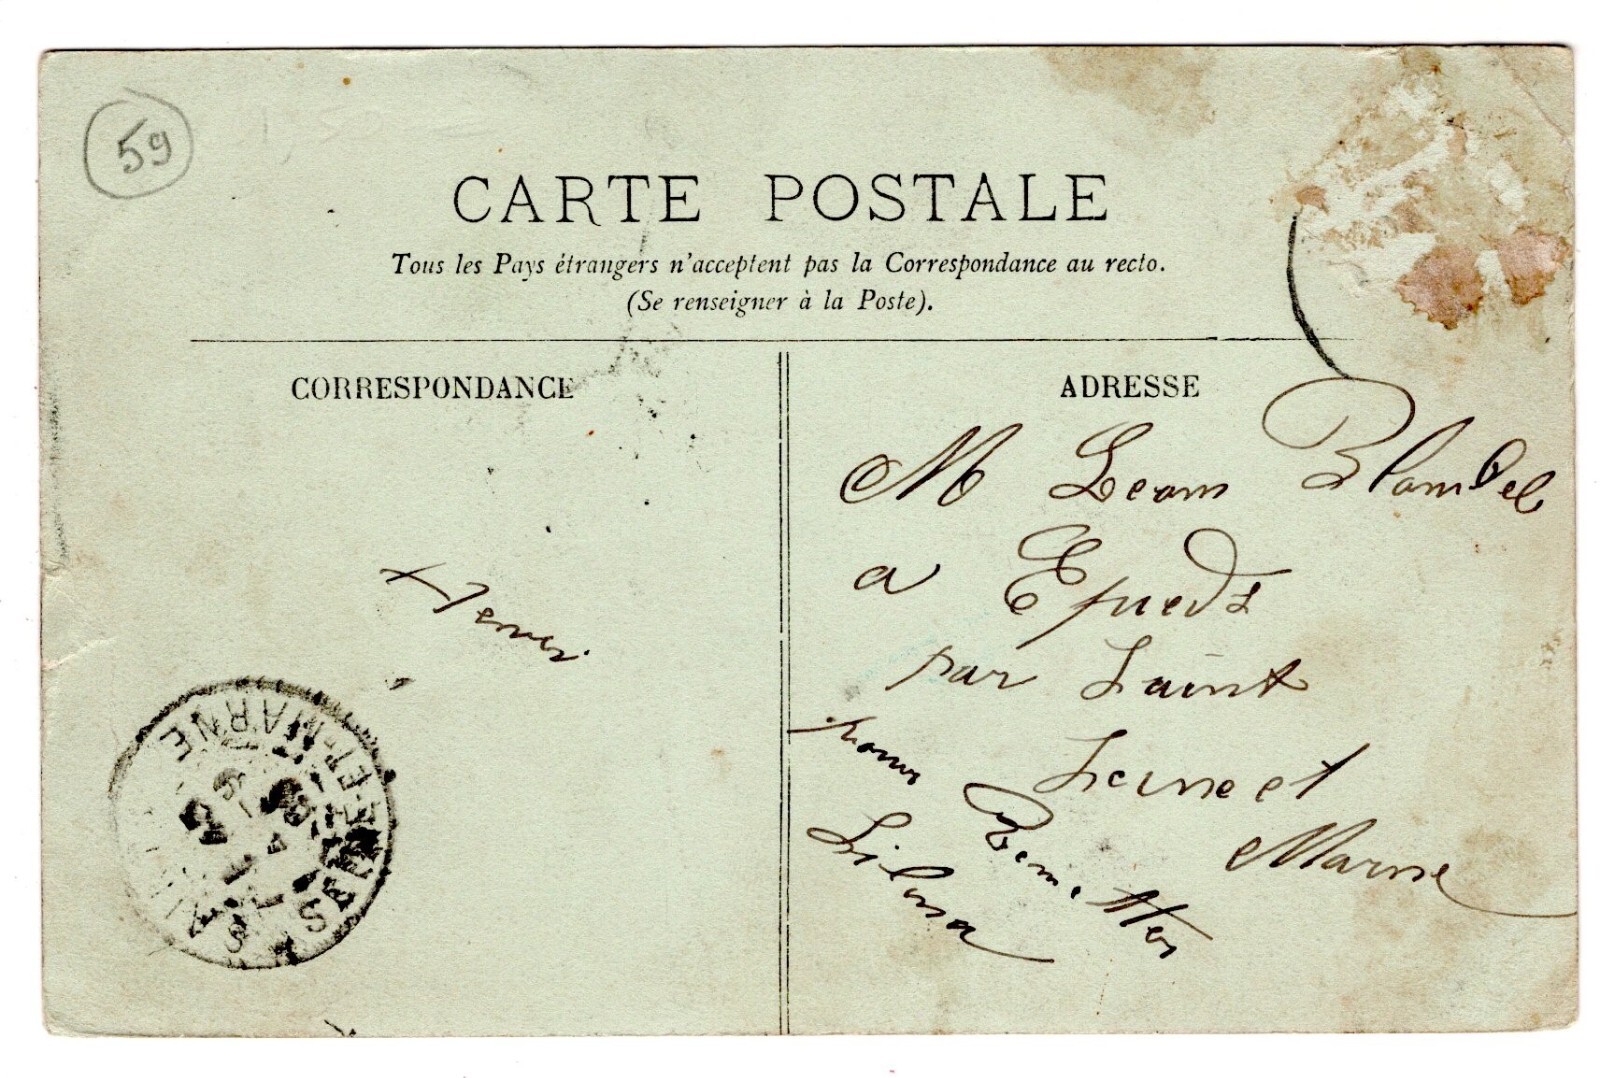 59
CARTE POSTALE
Tous les Pays étrangers n'acceptent pas la Correspondance au recto.
(Se renseigner à la Poste).
CORRESPONDANCE
ADRESSE
M Leon Blondel
a Epieds
par Saint
pour
Seine et
Remettre
Marne
SEINE-ET-MARNE